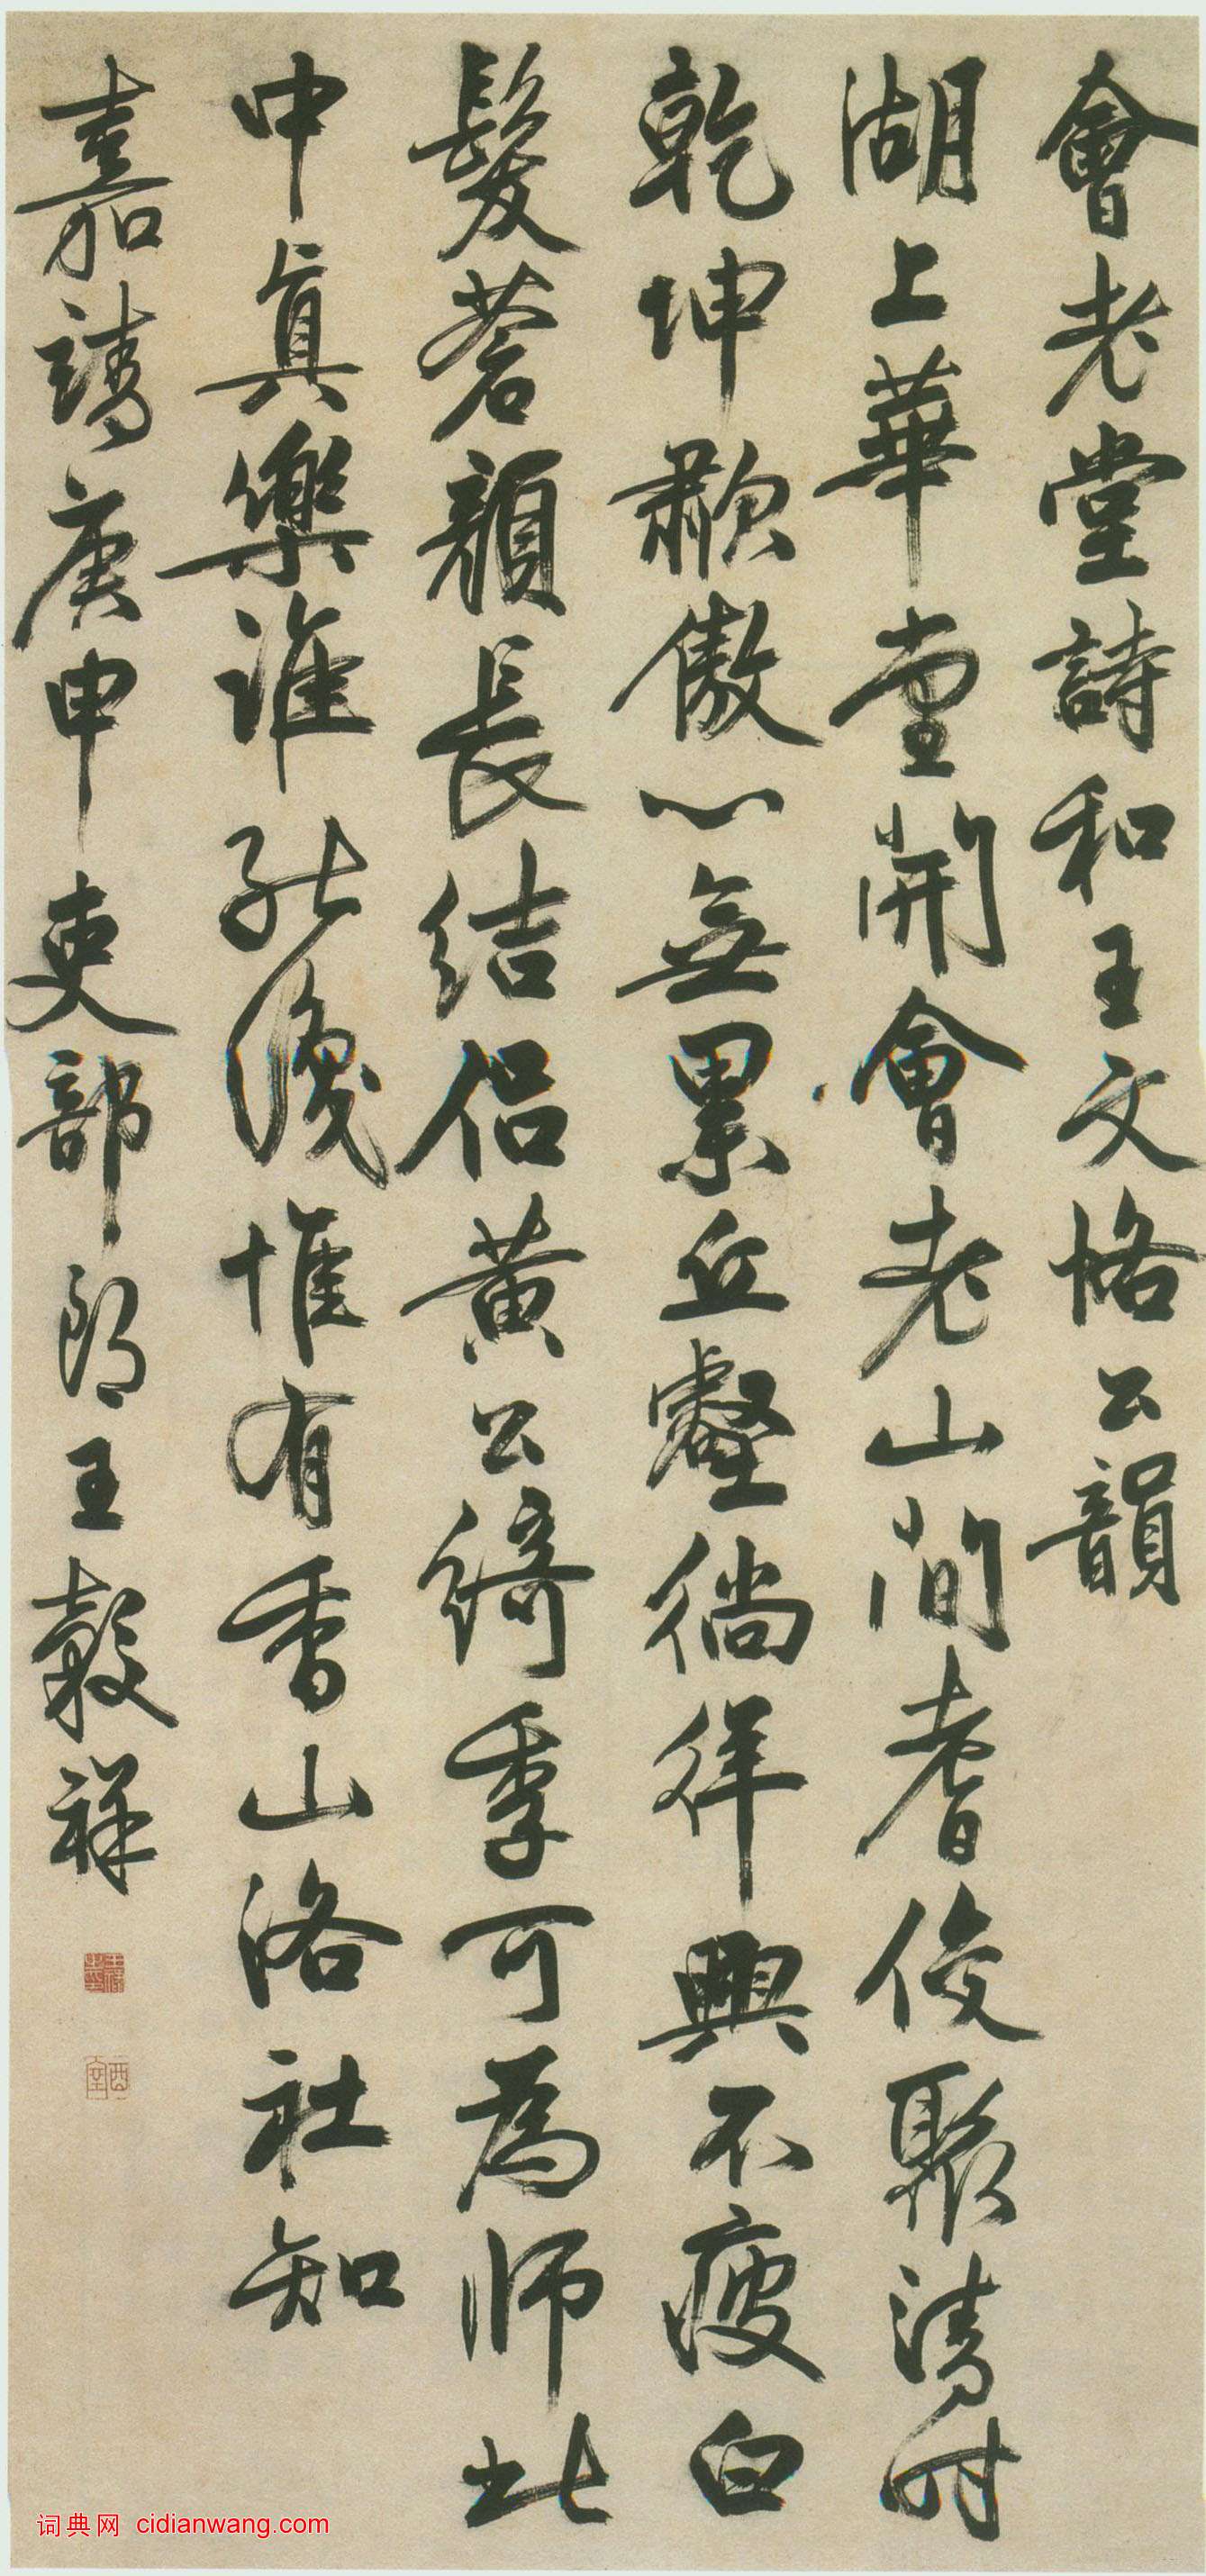 會老堂詩和王文恪公韻
湖上華堂開會老山間耆俊聚清時
乾坤歗傲心無累丘壑徜徉興不疲白
髮蒼顏長結侶黃公綺季可為師此
中真樂誰能識惟有香山洛社知
嘉靖庚申吏部郎王穀祥
酉室
词典网 cidianwang.com